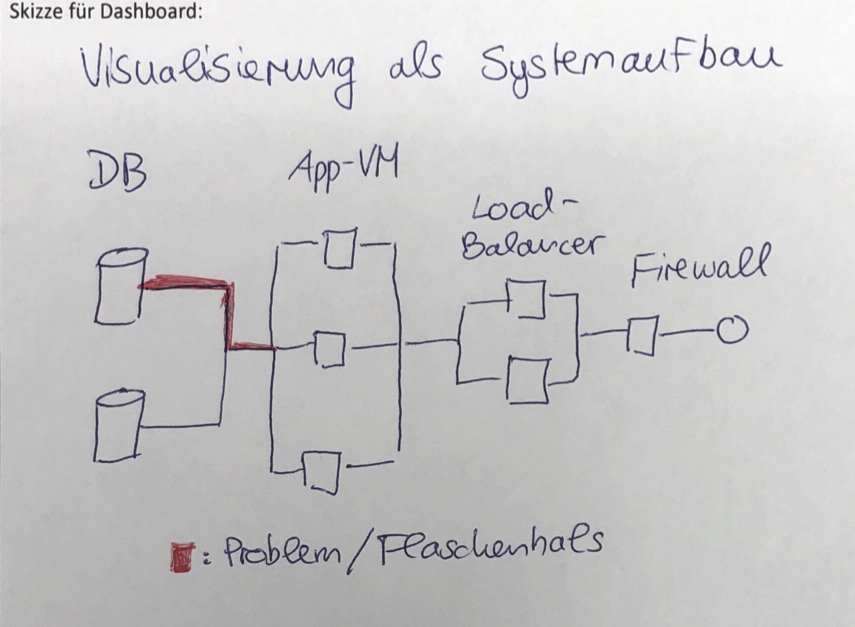 Skizze für Dashboard:
Visualisierung als Systemaufbau
DB
App-VM
Load-
Balancer
Firewall
: Problem/Flaschenhals